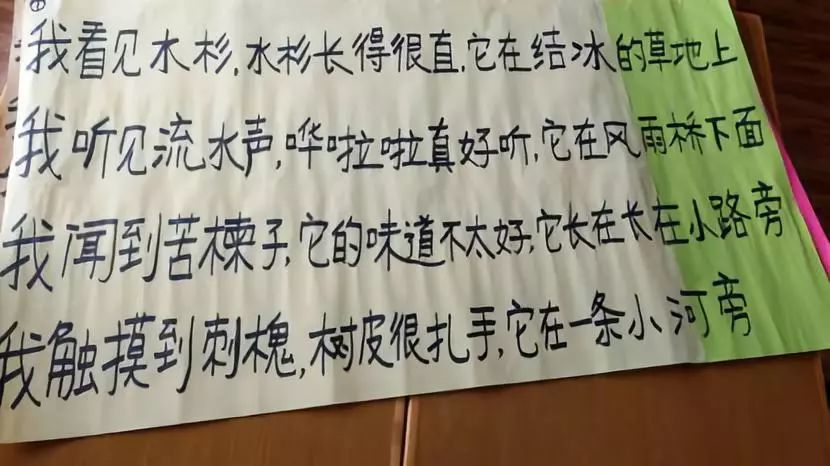 ①
我看见水杉,水杉长得很直,它在结冰的草地上
我听见流水声,哗啦啦真好听,它在风雨桥下面
我闻到苦楝子,它的味道不太好,它长在长在小路旁
我触摸到刺槐,树皮很扎手,它在一条小河旁